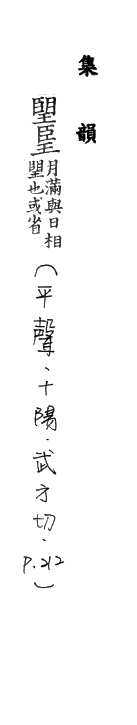 集韻
朢𦣠月滿與日相朢也或省（平聲、十陽．武方切．P.212）